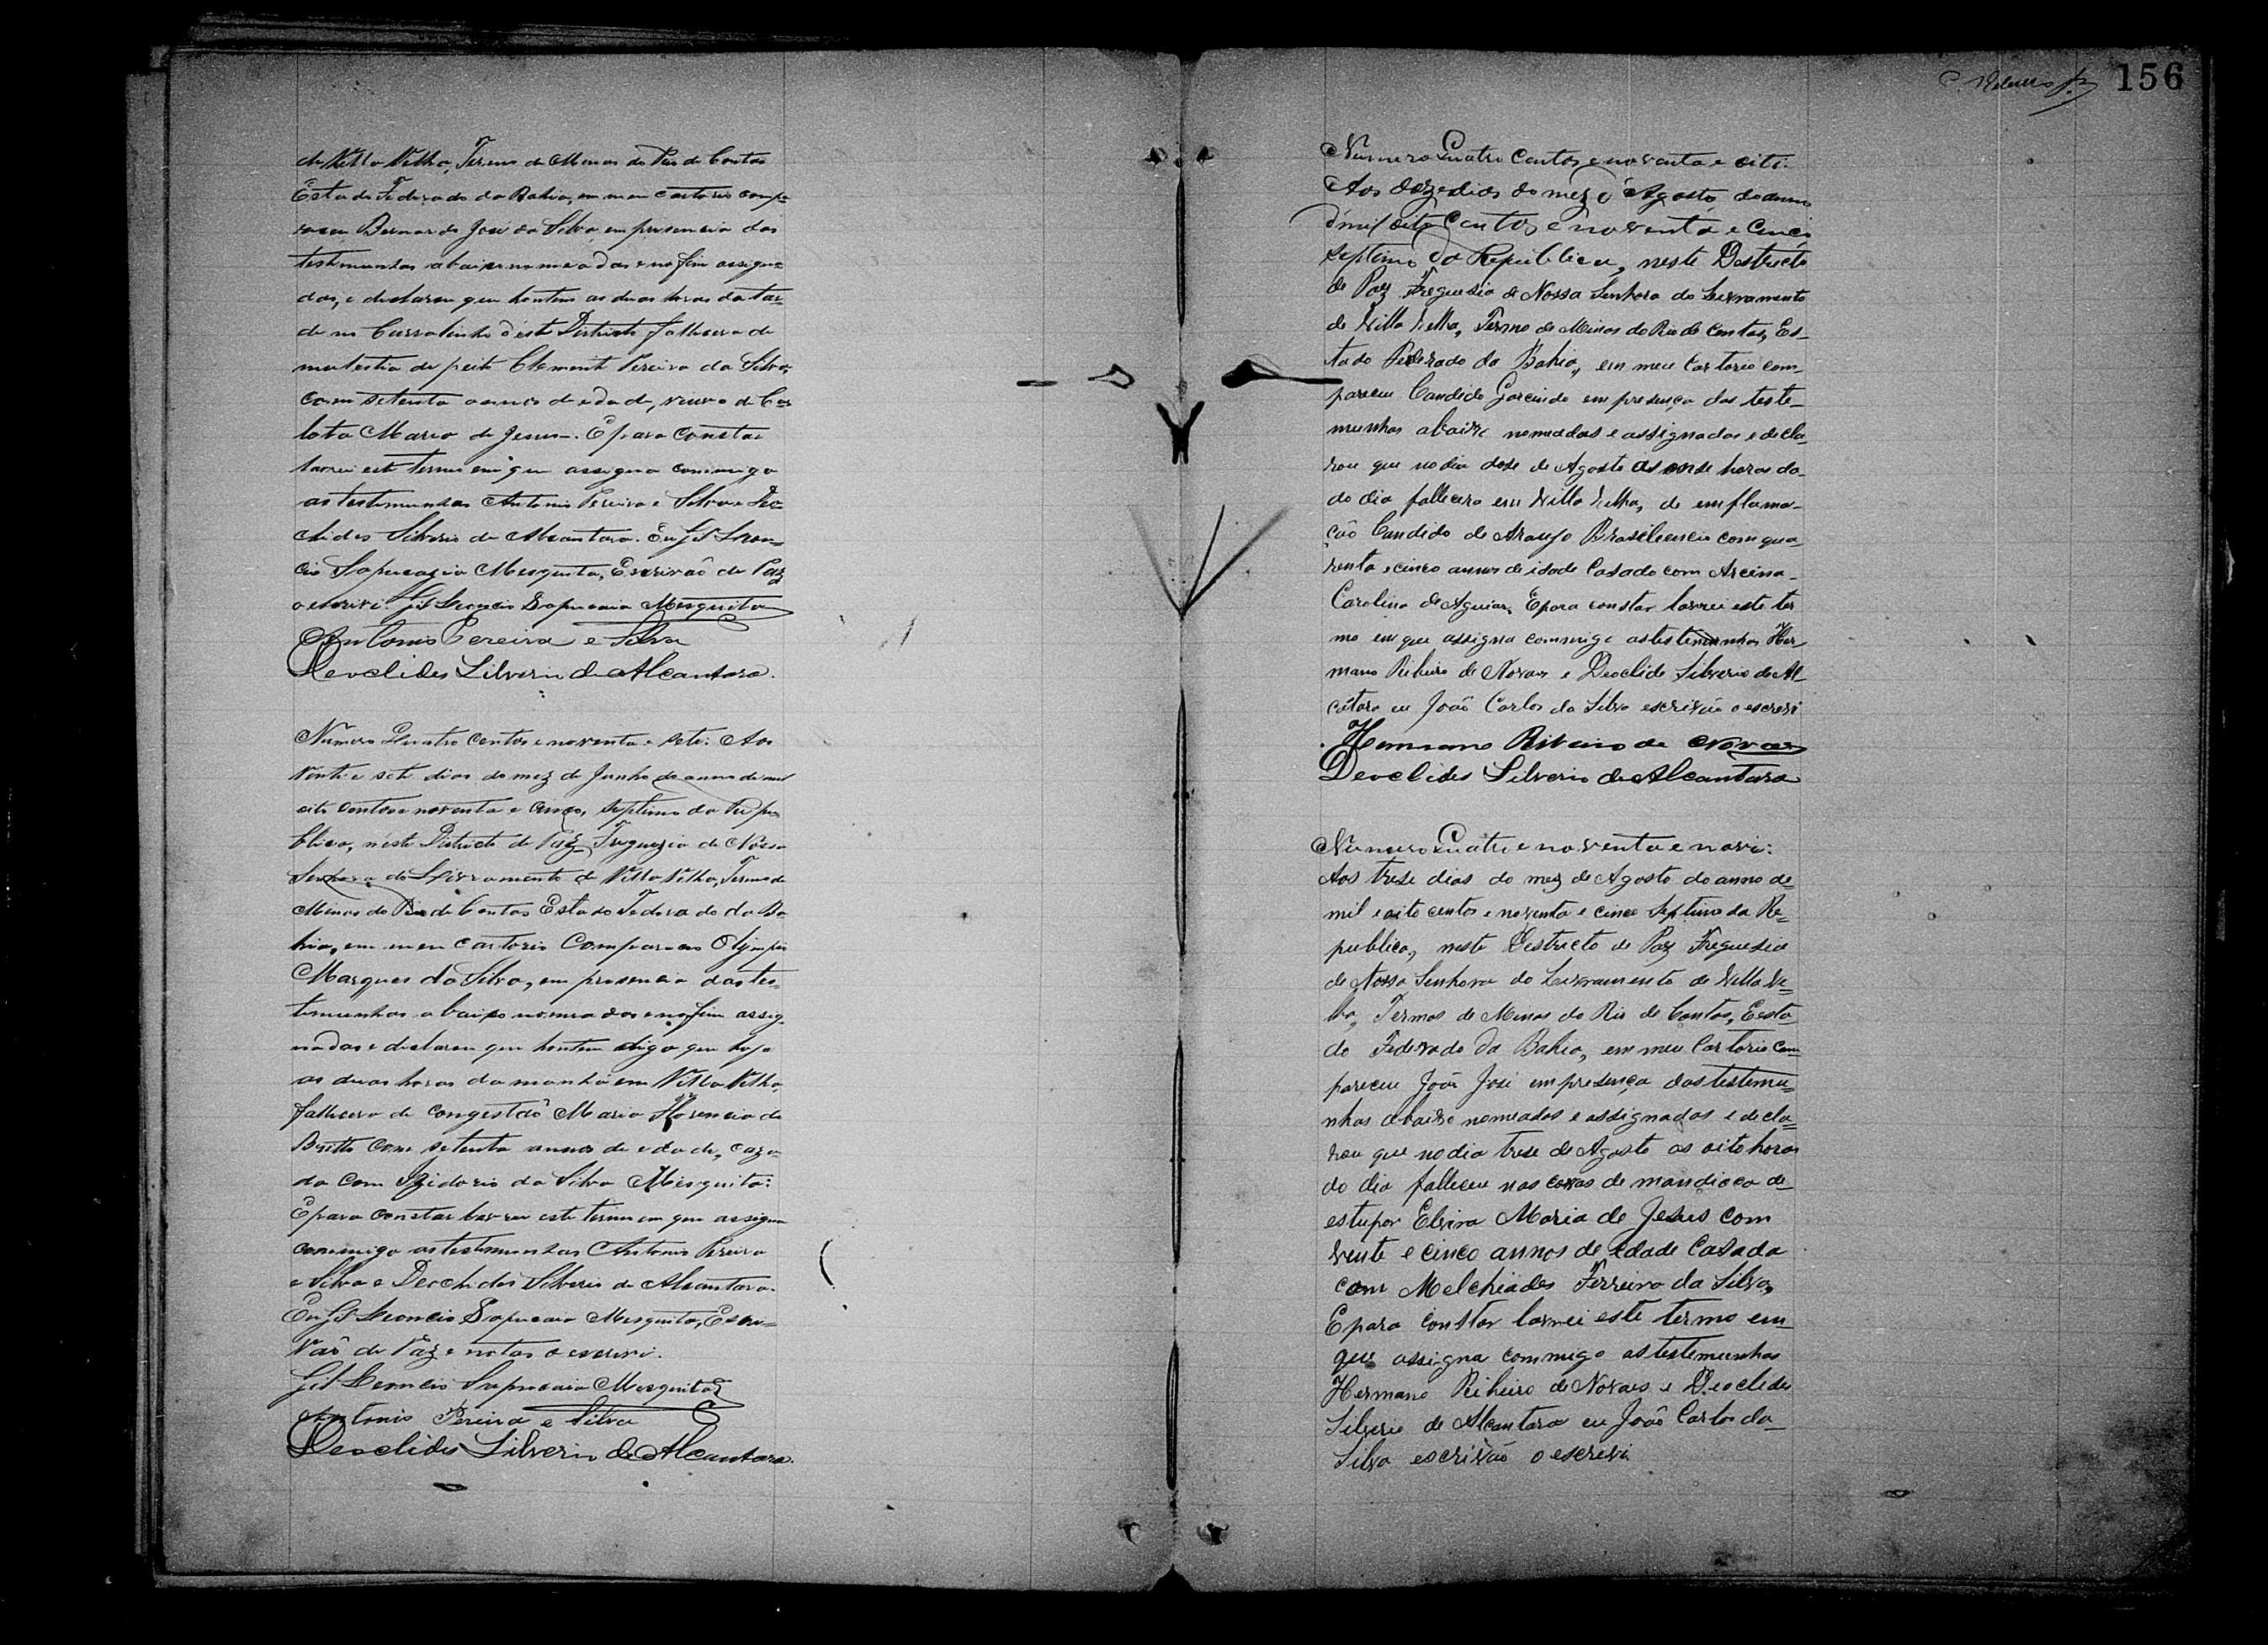 de Villa Velha, Termo de Minas do Rio de Contas
Estado Federado da Bahia, em meu cartorio compa-
receu Bernardo José da Silva em presencia das
testemunhas abaixo nomeadas e no fim assigna-
das, e declarou que hontem as duas horas da tar-
de no Curralinho d'este Districto falleceu de
molestia de peito Clemente Pereira da Silva,
com setenta annos de edade, viuvo de Car
lota Maria de Jesus. E para constar
lavrei este termo em que assigna commigo
as testemunhas Antonio Pereira e Silva e Deo-
clides Silverio de Alcantara. Eu Gil Leon-
cio Sapucaia Mesquita, Escrivão de Paz
o escrivi. Gil Leoncio Sapucaia Mesquita
Antonio Pereira e Silva
Deoclides Silverio de Alcantara.
Numero Quatro centos e noventa e sete. Aos
Vinte e sete dias do mez de Junho do anno de mil
oito centos e noventa e cinco, septimo da Repu
blica, néste Districto de Paz, Freguezia de Nossa
Senhora do Livramento de Villa Velha, Termo de
Minas do Rio de Contas Estado Federado da Ba
hia, em meu cartorio Compareceu Olympio
Marques da Silva, em presencia das tes-
temunhas abaixo nomeadas e no fim assig-
nadas e declarou que hontem digo que hoje
as duas horas da manhã em Villa Velha,
falleceu de congestão Maria Florencia de
Britto com setenta annos de edade, caza-
da com Izidorio da Silva Mesquita:
E para constar lavrei este termo em que assigna
commigo as testemunhas Antonio Pereira
e Silva e Deoclides Silverio de Alcantara.
Eu Gil Leoncio Sapucaia Mesquita, Escri=
vão de Paz e notas o escrivi.
Gil Leoncio Sapucaia Mesquita
Antonio Pereira e Silva
Deoclides Silverio de Alcantara.
156
Numero Quatro Centos e noventa e oito.
Aos doze dias do mez d'Agosto do anno
d'mil oito Centos e noventa e Cinco
septimo da Republica, neste Destricto
de Paz Freguesia de Nossa Senhora do Livramento
de Villa Velha, Termo de Minas do Rio de Contas, Es-
tado Federado da Bahia, em meu Cartorio com-
pareceu Candido Garcindo em presença das teste-
munhas abaixo nomeadas e assignadas e decla-
rou que no dia dose de Agosto as onse horas do
do dia fallecera em Villa Velha, de emflama-
ção Candido de Araujo Brasileencio com qua-
renta e cinco annos de idade Casado com Arcina
Carolina de Aguiar. E para constar lavrei este ter
mo em que assigna commigo as testemunhas Her-
mano Ribeiro de Novaes e Deoclide Silverio de Al-
cãtara eu João Carlos da Silva escrivão o escrevi
Hermano Ribeiro de Novaes
Deoclides Silverio de Alcantara
Numero Quatro e noventa e nove:
Aos trese dias do mez de Agosto do anno de=
mil e oito centos e noventa e cinco Septimo da Re=
publica, neste Destricto de Paz Freguesia
de Nossa Senhora do Livramento de Villa Ve=
lha, Termos de Minas do Rio de Contas, Esta-
do Federado da Bahia, em meu Cartorio com-
pareceu João José em presença das testemu=
nhas abaixo nomeadas e assignadas e decla=
rou que no dia trese de Agosto as oito horas
do dia falleceu nas covas de mandioca de
estupor Elvira Maria de Jesus com
vente e cinco annos de edade Casada
com Melchiades Ferreira da Silva,
E para constar lavrei este termo em
que assigna commigo as testemunhas
Hermano Ribeiro de Novaes e Deoclides
Silverio de Alcantara eu João Carlos da
Silva escrivão o escrevi